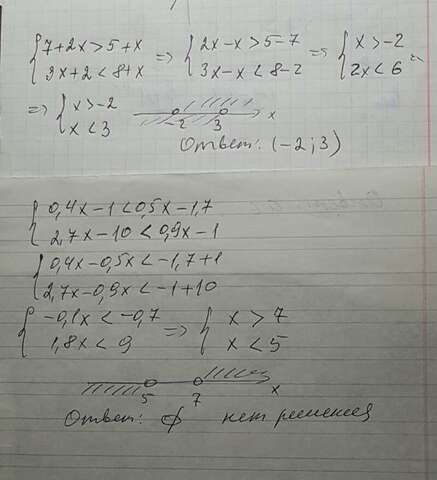 { 7+2x>5+x => { 2x-x>5-7 => { x>-2
{ 3x+2<8+x { 3x-x<8-2 { 2x<6 =
=> { x>-2
{ x<3 -2 3 x
Ответ: (-2;3)
{ 0,4x-1<0,5x-1,7
{ 2,7x-10<0,9x-1
{ 0,4x-0,5x<-1,7+1
{ 2,7x-0,9x<-1+10
{ -0,1x<-0,7 => { x>7
{ 1,8x<9 { x<5
5 7 x
Ответ: ∅ нет решения